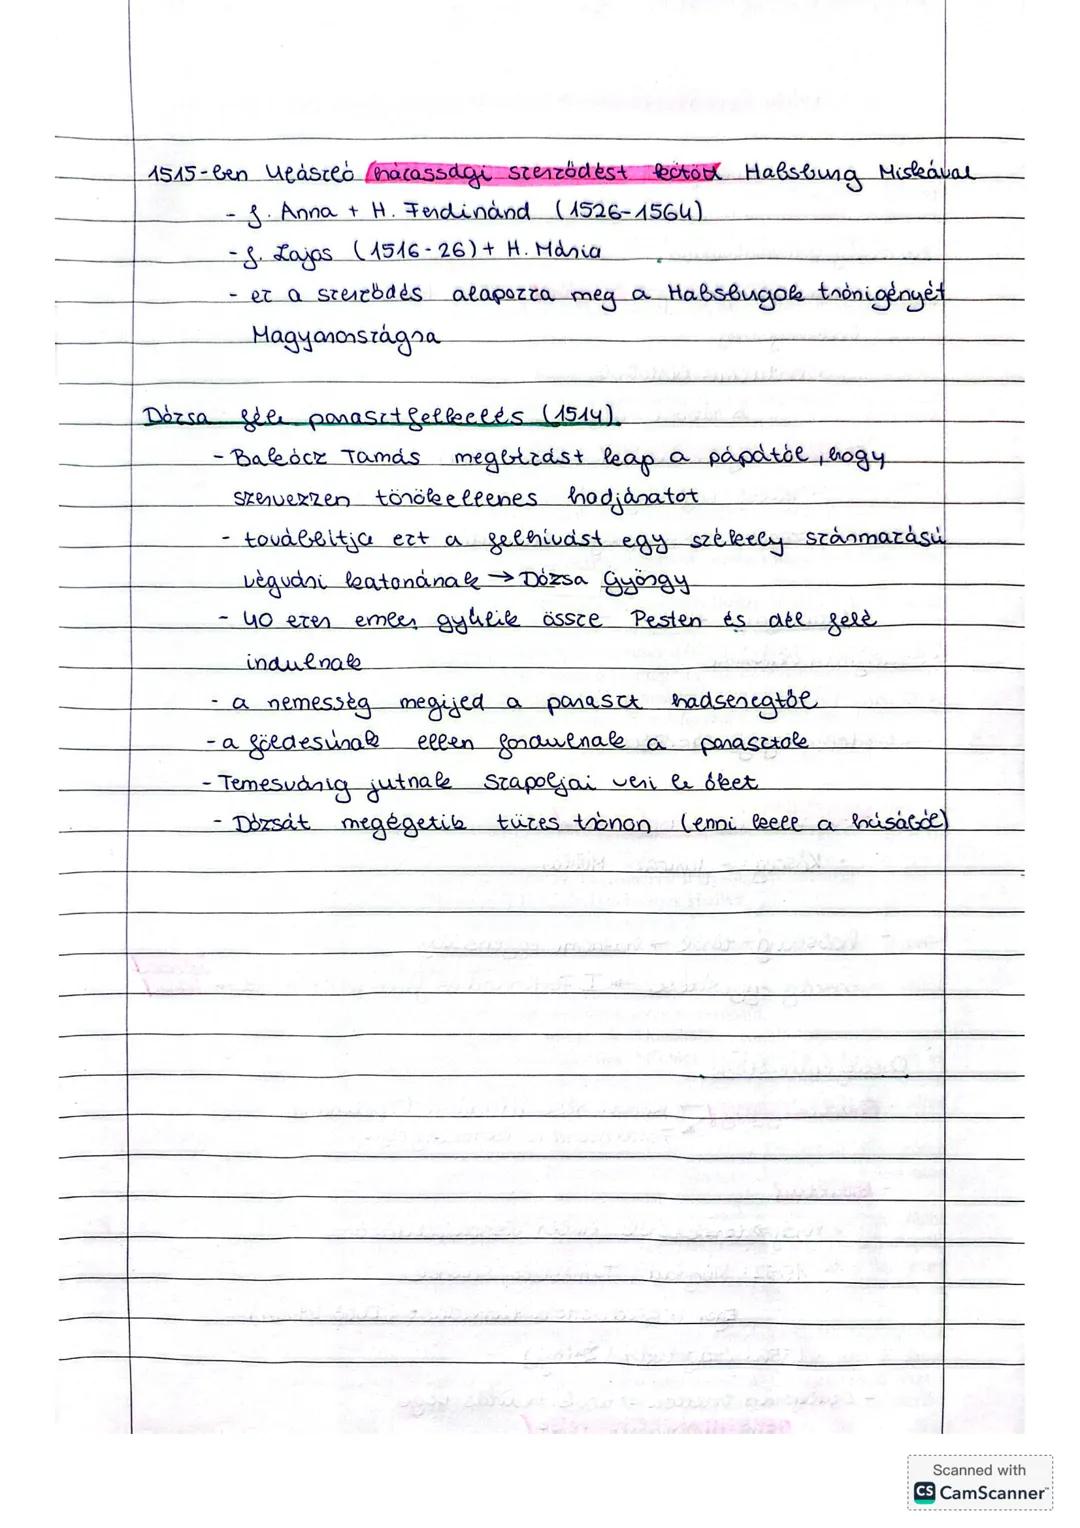 1515-ben Ulászló házassági szerződést kötött Habsburg Miskával
- J. Anna + H. Ferdinánd (1526-1564)
- J. Lajos (1516-26) + H. Mária
- ez a szerződés alapozza meg a Habsbugok trónigényét
Magyarországra
Dózsa féle parasztfelkelés (1514)
- Bakócz Tamás megbízást kap a pápától, hogy
szervezzen törökellenes hadjáratot
- továbbítja ezt a felhívást egy székely származású
végvári katonának → Dózsa György
- 40 ezer ember gyűlik össze Pesten és dél felé
indulnak
- a nemesség megijed a paraszt hadseregtől
- a földesúrak ellen fordulnak a parasztok
- Temesvárig jutnak Szapoljai veri le őket
- Dózsát megégetik tüzes trónon (enni kell a húsából)
Scanned with
CS CamScanner